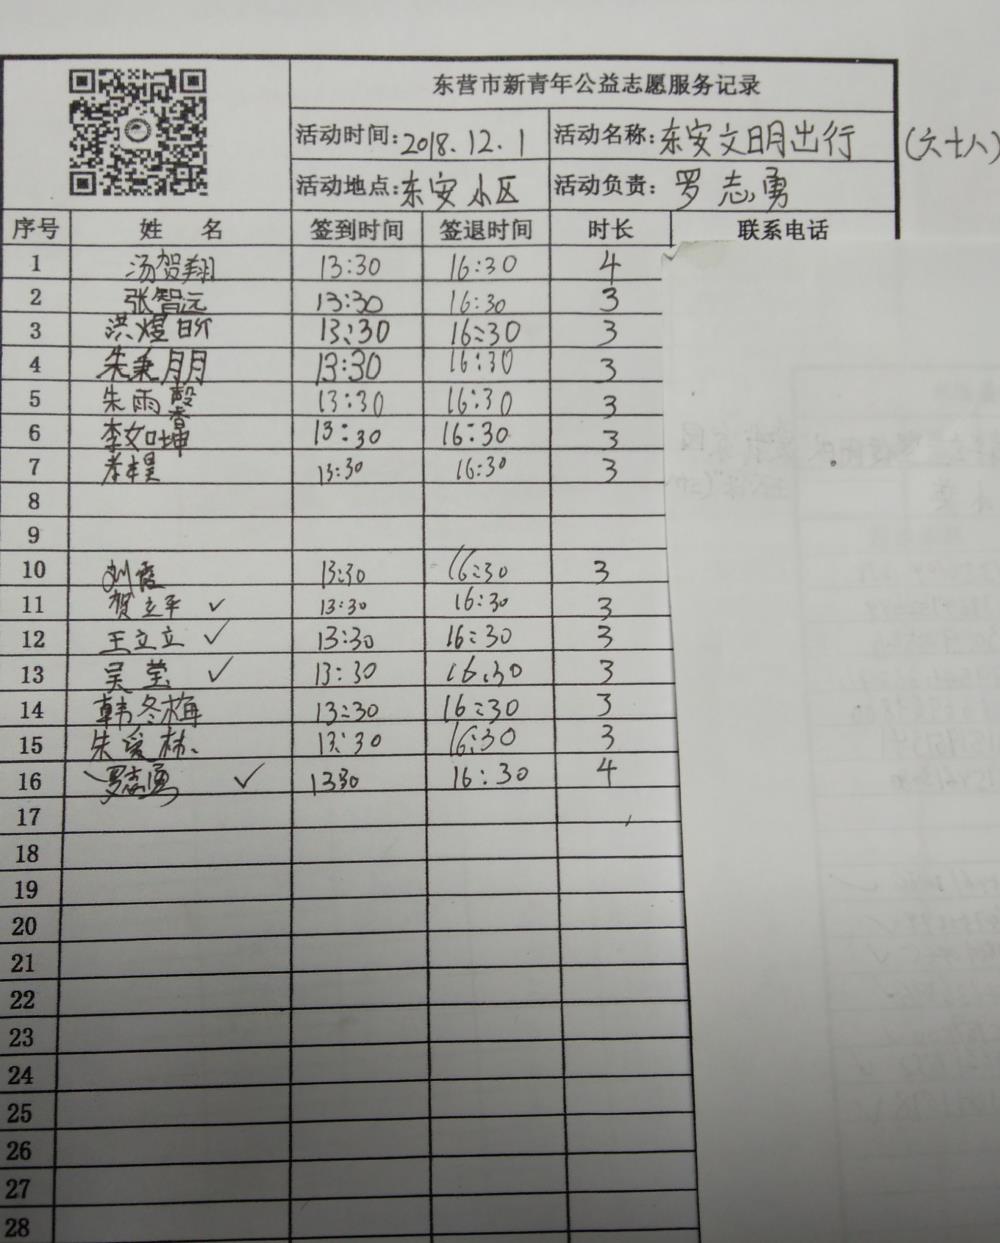 东营市新青年公益志愿服务记录
活动时间:2018.12.1 活动名称:东安文明出行 (六十八)
活动地点:东安小区 活动负责:罗志勇
序号 姓 名 签到时间 签退时间 时长 联系电话
1 汤贺翔 13:30 16:30 4
2 张智远 13:30 16:30 3
3 洪煜昕 13:30 16:30 3
4 朱秉明 13:30 16:30 3
5 朱雨馨 13:30 16:30 3
6 李如坤 13:30 16:30 3
7 13:30 16:30 3
8
9
10 刘霞 13:30 16:30 3
11 贺立平 ✓ 13:30 16:30 3
12 王立立 ✓ 13:30 16:30 3
13 吴莹 ✓ 13:30 16:30 3
14 韩冬梅 13:30 16:30 3
15 朱爱林 13:30 16:30 3
16 罗志勇 ✓ 1330 16:30 4
17
18
19
20
21
22
23
24
25
26
27
28